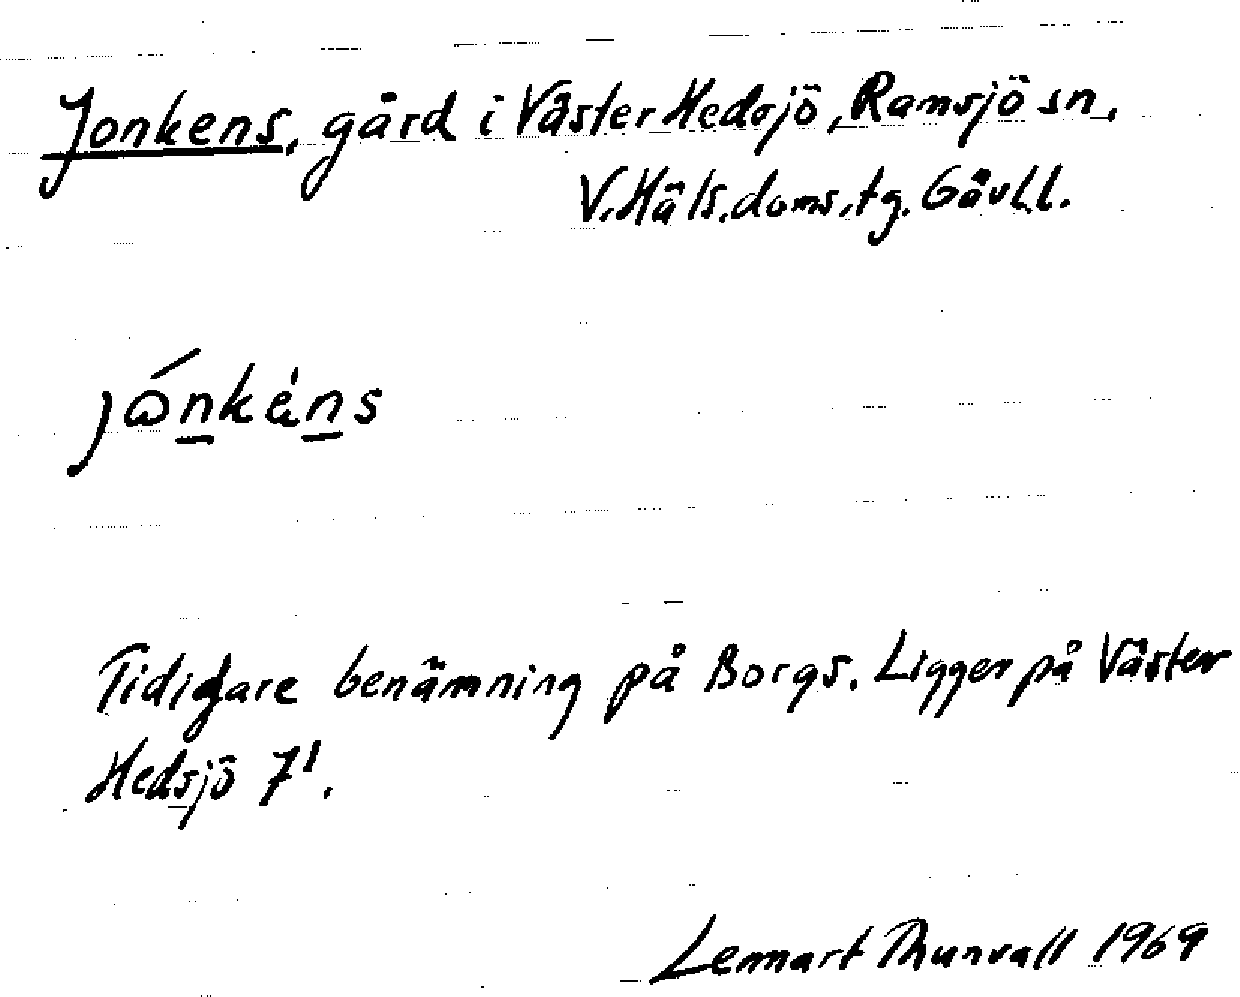 Jonkens, gård i Väster Hedsjö, Ramsjö sn.
V. Häls. doms. tg. Gävl l.
jónkèns
Tidigare benämning på Borgs. Ligger på Väster
Hedsjö 7¹.
Lennart Thunvall 1969